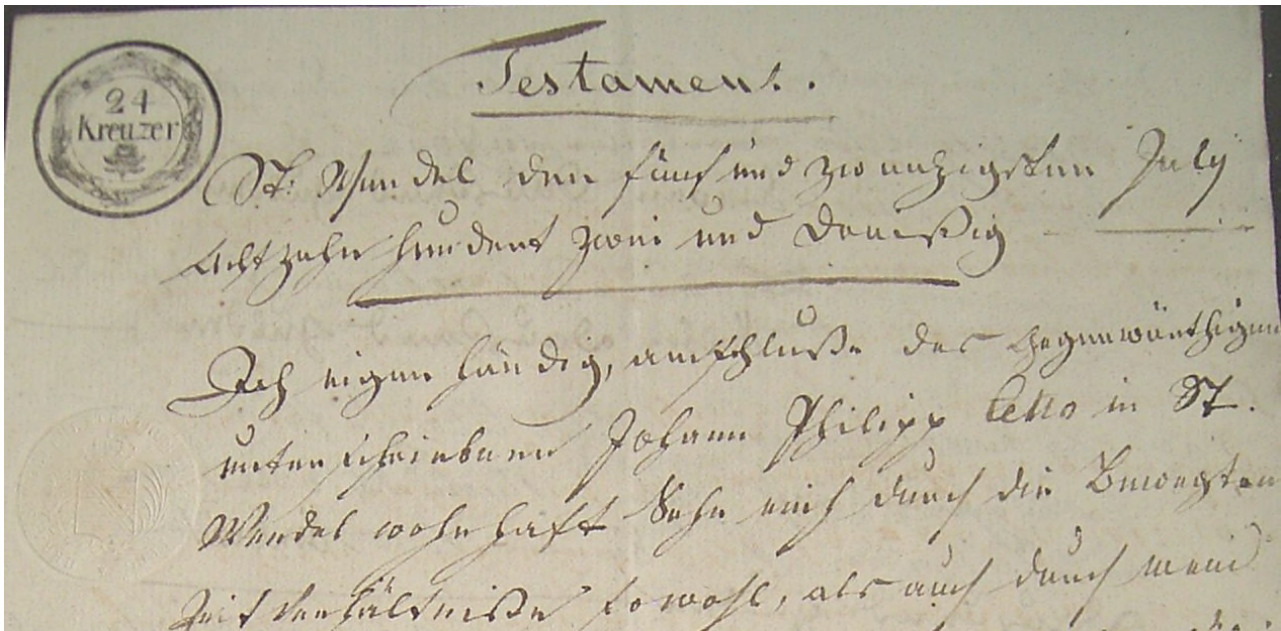 24
Kreuzer
Testament.
St: Wendel den fünf und zwanzigsten July
Achtzehn hundert zwei und Dreißig
Ich eigen händig, am schluße des Gegenwärthigen
unterschriebener Johann Philipp Cetto in St.
Wendel wohnhaft Sehe mich durch die Bewegten
Zeit Verhältniße sowohl, als auch durch mein